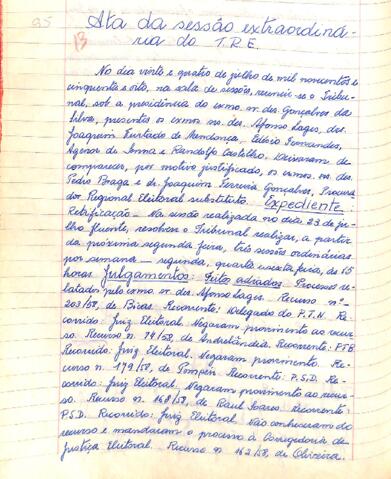 25
13
Ata da sessão extraordiná-
ria do T.R.E.
No dia vinte e quatro de julho de mil novecentos e
cinquenta e oito, na sala de sessões, reuniu-se o Tribu-
nal, sob a presidência do exmo. sr. des. Gonçalves da
Silva, presentes os exmos. srs. des. Afonso Lages, drs.
Joaquim Furtado de Mendonça, Edésio Fernandes,
Agenor de Senna e Randolfo Castelho. Deixaram de
comparecer, por motivo justificado, os exmos. srs. des.
Pedro Braga e dr. Joaquim Ferreira Gonçalves, Procura-
dor Regional Eleitoral substituto. Expediente:
Retificação — Na sessão realizada no dia 23 de ju-
lho fluente, resolveu o Tribunal realizar, a partir
da próxima segunda feira, três sessões ordinárias
por semana — segunda, quarta e sexta feira, às 15
horas. Julgamentos: Feitos adiados: Processos re-
latados pelo exmo. sr. des. Afonso Lages. Recurso nº
203/58, de Bicas. Recorrente: Delegado do P.T.N. Re-
corrido: Juiz Eleitoral. Negaram provimento ao recur-
so. Recurso n. 79/58, de Andrelândia. Recorrente: P.T.B.
Recorrido: Juiz Eleitoral. Negaram provimento. Re-
curso n. 179/58, de Pompéu. Recorrente: P.S.D. Re-
corrido: Juiz Eleitoral. Negaram provimento ao recur-
so. Recurso n. 168/58, de Raul Soares. Recorrente:
P.S.D. Recorrido: Juiz Eleitoral. Não conheceram do
recurso e mandaram o processo à Corregedoria de
Justiça Eleitoral. Recurso n. 162/58, de Oliveira.